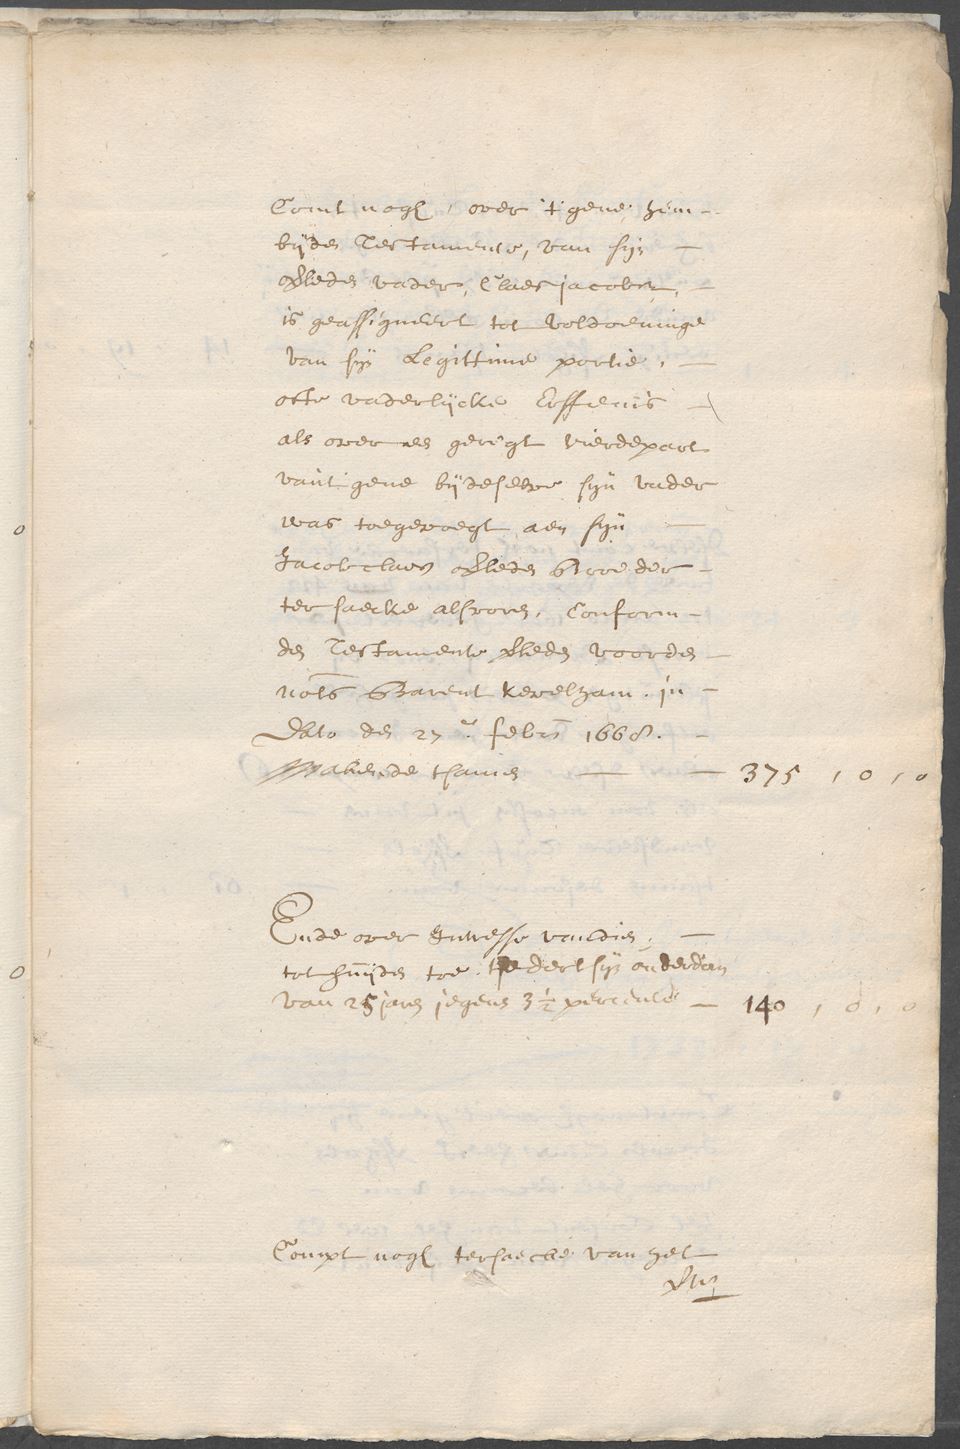 Comt nogh, over 't gene hem -
bijden Testamente, van sijn -
Overleden vader, Claes jacobsz, -
is geassigneert tot voldoeninge
van sijn Legittime portie, -
ofte vaderlijcke Erffenis -
als over een geregt vierdepart
vant gene bijdeselve sijn vader
was toegevoegt aen sijn -
Jacob claesz overleden Broeder -
ter saecke alsvoren, Conform -
den Testamente verleden voorden -
Nots Barent Kevelham. in -
Dato den 27e febrij 1668. -
Makende t'samen - - 375, 0, 0
Ende over Intresse vandien, -
tot huijden toe, den
van 25 jaren jegens 3 1/2 percento - 140, 0, 0
0
0
Compt nogh tersaecke van het